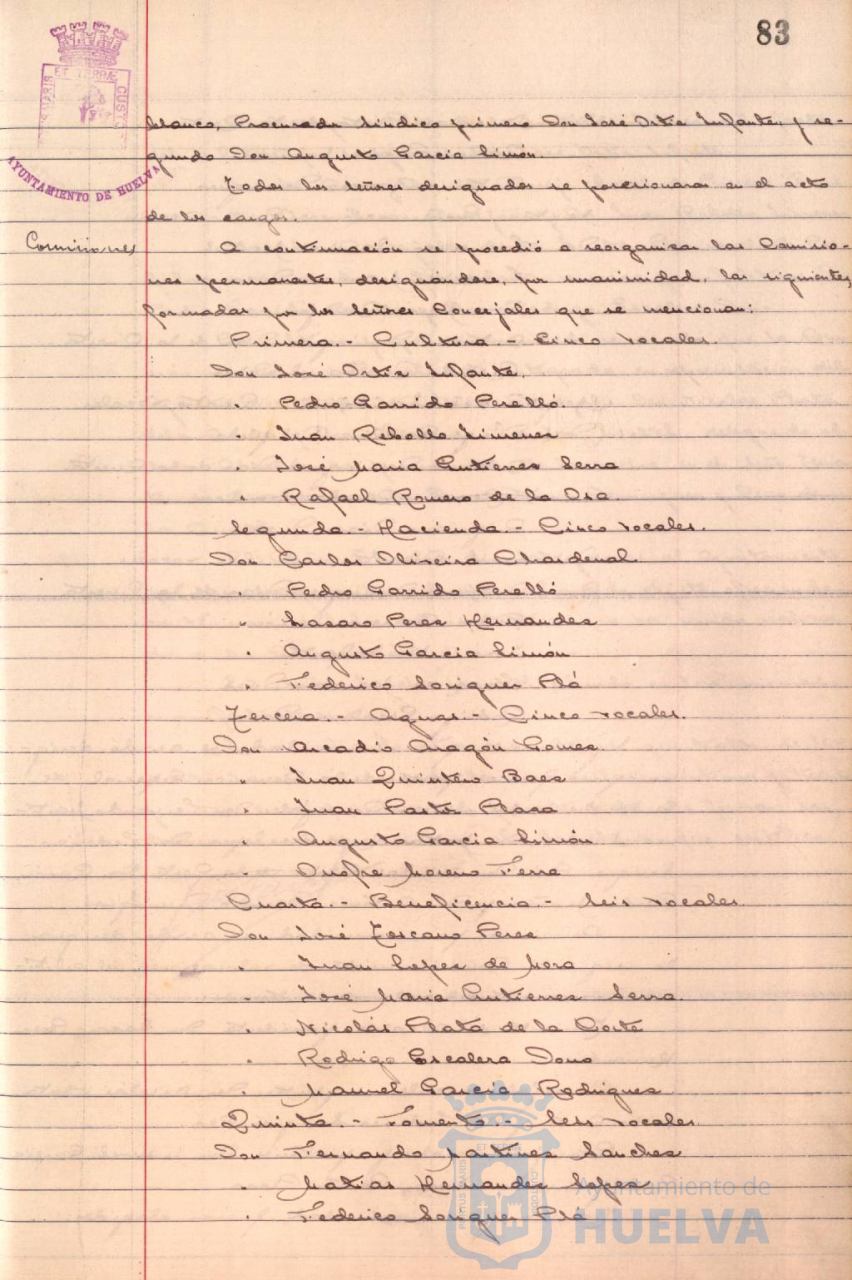 83
ET TERRÆ CUSTO
AYUNTAMIENTO DE HUELVA
blanco, Procurador Sindico primero Don José Ortiz Infante, y se-
gundo Don Augusto Garcia Simón.
Todos los señores designados se posesionaron en el acto
de los cargos.
Comisiones
A continuación se procedió a reorganizar las Comisio-
nes permanentes, designándose, por unanimidad, las siguientes,
formadas por los señores Concejales que se mencionan:
Primera.- Cultura.- Cinco vocales.
Don José Ortiz Infante.
" Pedro Garrido Perelló.
" Juan Rebollo Jimenez
" José Maria Gutierrez Serra
" Rafael Romero de la Osa.
Segunda.- Hacienda.- Cinco vocales.
Don Carlos Oliveira Chardenal.
" Pedro Garrido Perelló
" Lazaro Perez Hernandez
" Augusto Garcia Simón
" Federico Soriguer Plá
Tercera.- Aguas.- Cinco vocales.
Don Arcadio Aragón Gomez.
" Juan Quintero Baez
" Juan Pastor Plaza
" Augusto Garcia Simón
" Onofre Moreno Ferra
Cuarta.- Beneficencia.- Seis vocales.
Don José Toscano Perez
" Juan Lopez de Mora
" José Maria Gutierrez Serra.
" Nicolás Plata de la Corte
" Rodrigo Escalera Dono
" Manuel Garcia Rodriguez
Quinta.- Fomento.- Seis vocales.
Don Fernando Martinez Sanchez
" Matias Hernandez Lopez
" Federico Soriguer Plá
Ayuntamiento de
HUELVA